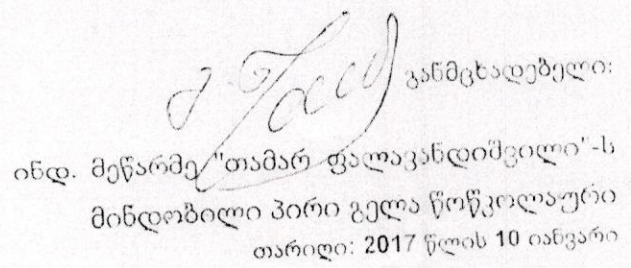 განმცხადებელი:
ინდ. მეწარმე "თამარ ფალავანდიშვილი"-ს
მინდობილი პირი გელა წოწკოლაური
თარიღი: 2017 წლის 10 იანვარი